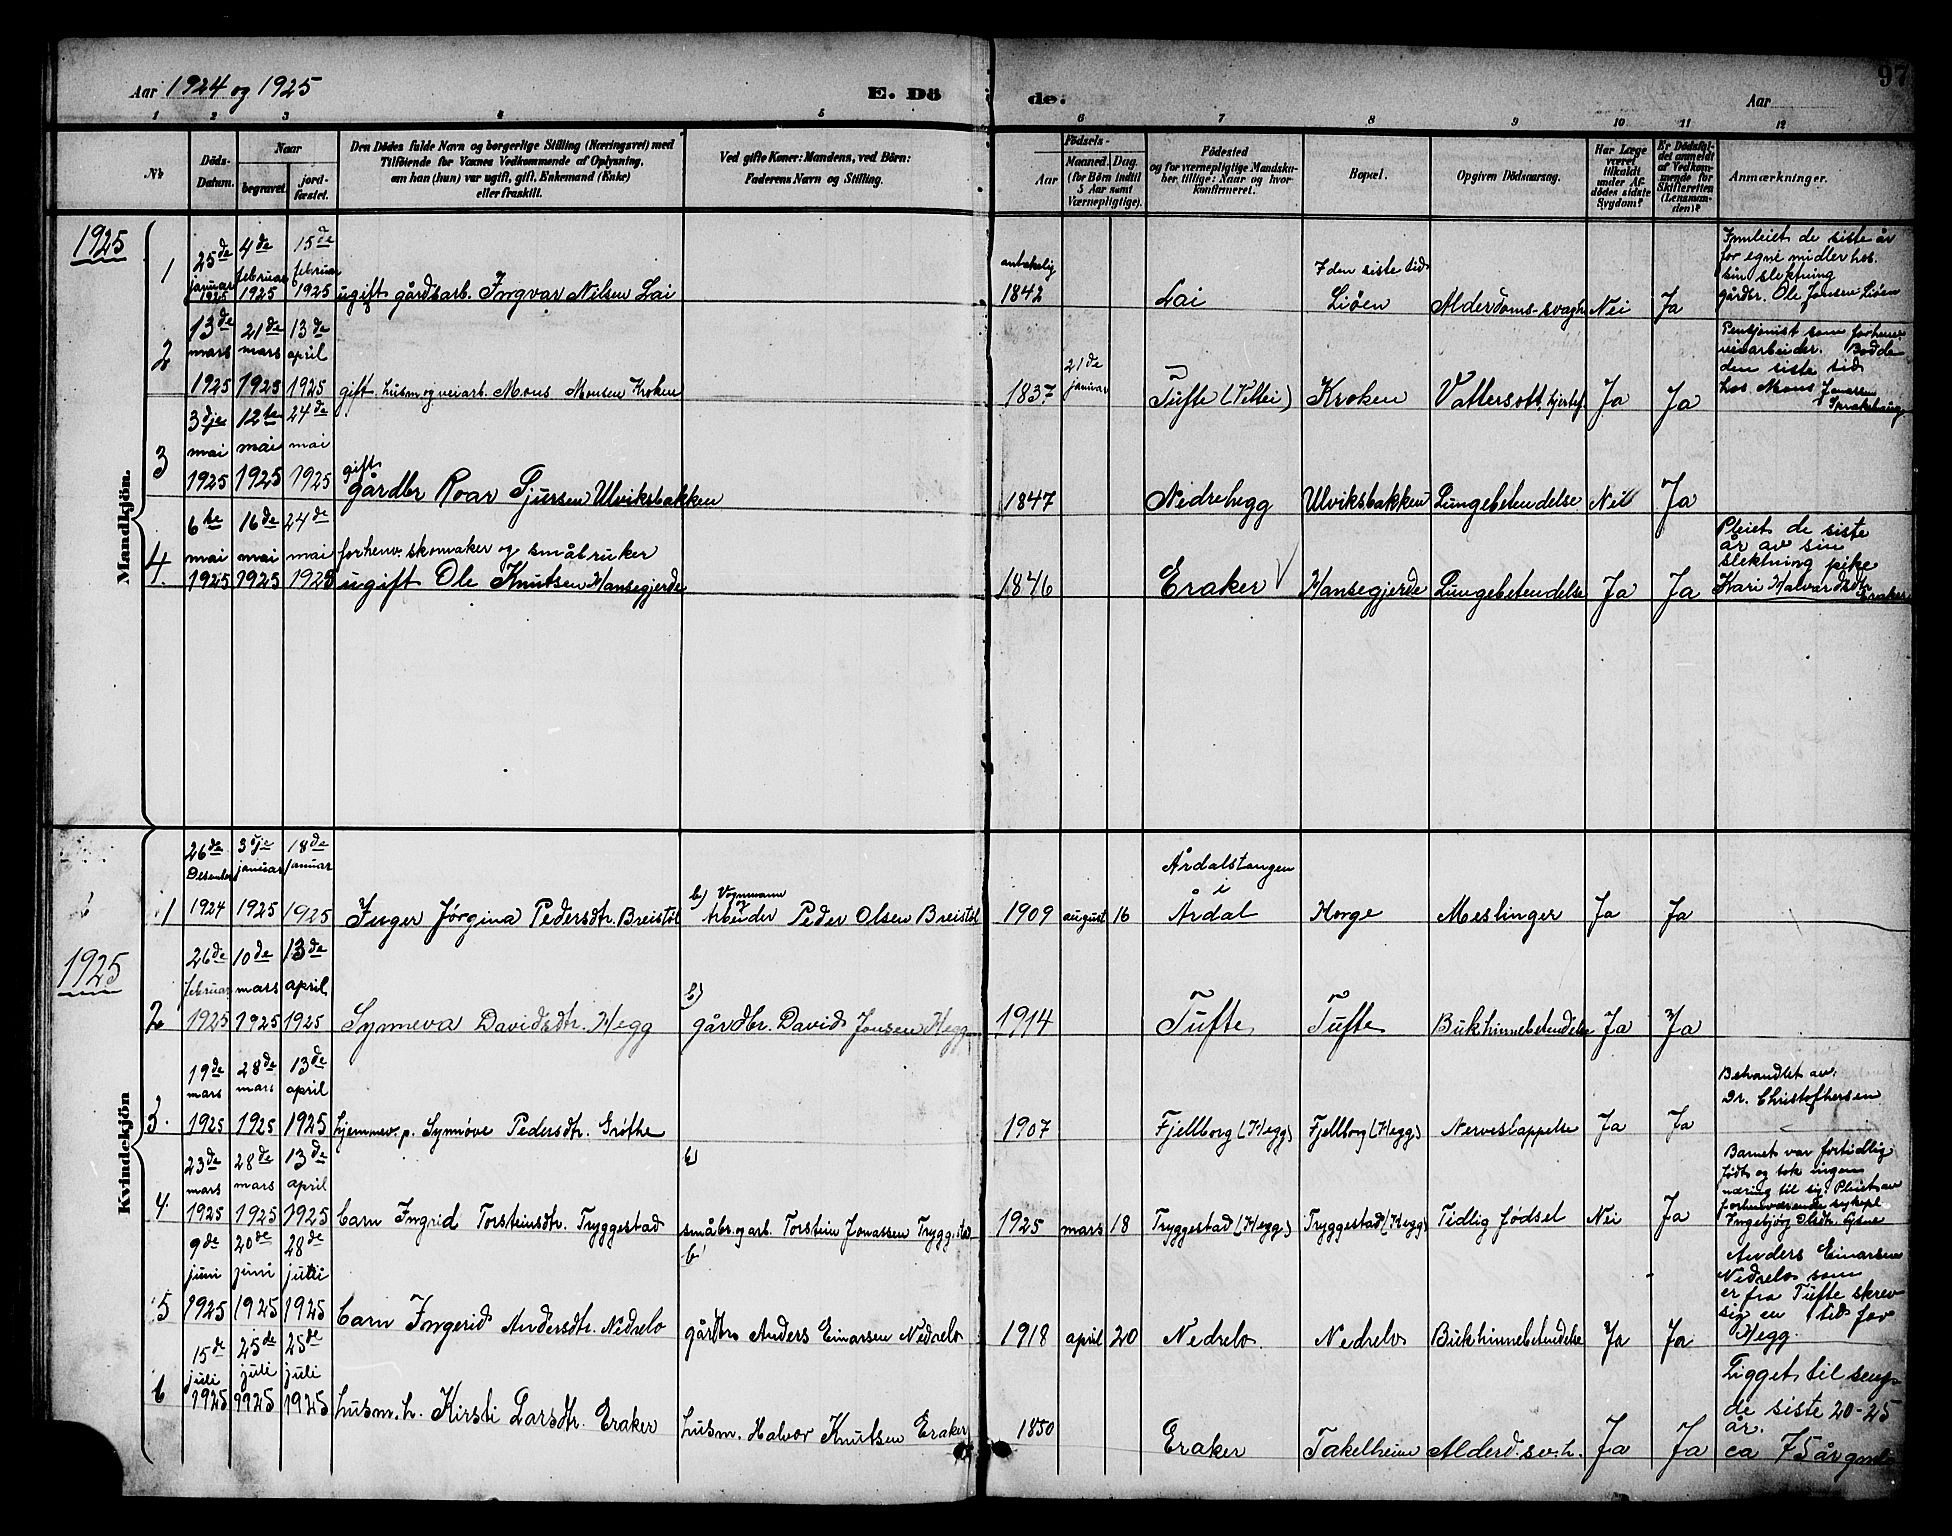 Aar 1924 og 1925
E. Dö
de.
Aar
97
1 2 3 4 5 6 7 8 9 10 11 12
No
Döds-
Datum.
Naar
begravet.
jord-
fæstet.
Den Dödes fulde Navn og borgerlige Stilling (Næringsvei) med
Tilföiende for Voxnes Vedkommende af Oplysning,
om han (hun) var ugift, gift, Enkemand (Enke)
eller fraskilt.
Ved gifte Koner: Mandens, ved Börn:
Faderens Navn og Stilling.
Födsels-
Aar
Maaned. Dag.
(for Börn indtil
5 Aar samt
Værnepligtige).
Födested
og for værnepligtige Mandska-
ber, tillige: Naar og hvor
konfirmeret.
Bopæl.
Opgiven Dödsaarsag.
Har Læge
været
tilkaldt
under Af-
dödes sidste
Sygdom?
Er Dödsfal-
det anmeldt
af Vedkom-
mende for
Skifteretten
(Lensman-
den)?
Anmærkninger.
1925
Mandkjön.
1
25de januar 1925
4de februar 1925
15de februar 1925
ugift gårdbarb. Ingvar Nilsen Lai
antakelig 1842
Lai
I den siste tid
Liøen
Alderdoms-svagh.
Nei
Ja
Innleiet de siste år
for egne midler hos
sin slektning
gårdbr. Ole Jensen Liøen
2
13de mars 1925
21de mars 1925
13de april 1925
gift husm og veiarb. Mons Monsen Kroken
1837
21de januar
Tufte (Vettei)
Kroken
Vattersott, hjertef.
Ja
Ja
Pensjonist som forhenv.
veiarbeider. Bodde
den siste tid
hos Mons Jonsen
3
3dje mai 1925
12te mai 1925
24de mai 1925
gift
gårdbr Roar Sjursen Ulviksbakken
1847
Nidrehegg
Ulviksbakken
Lungebetendelse
Nei
Ja
4.
6te mai 1925
16de mai 1925
24de mai 1925
forhenv. skomaker og småbruker
ugift Ole Knutsen Hansegjerde
1846
Eraker
Hansegjerde
Lungebetendelse
Ja
Ja
Pleiet de siste
år av sin
slektning pike
Kari Halvardsdtr
Eraker
1925
Kvindekjön
1
26de Desember 1924
3dje januar 1925
18de januar 1925
Inger Jørgina Pedersdtr. Breistøl
b) Vognmann
Arbeider Peder Olsen Breistøl
1909 august 16
Årdalstangen
i
Årdal
Horge
Meslinger
Ja
Ja
2
26de februar 1925
10de mars 1925
13de april 1925
Synneva Davidsdtr. Hegg
b)
gårdbr. David Jonsen Hegg
1914
Tufte
Tufte
Bukhinnebetendelse
Ja
Ja
3.
19de mars 1925
28de mars 1925
13de april 1925
hjemmev. p. Synnøve Pedersdtr. Grøthe
1907
Fjellborg (Hegg)
Fjellborg (Hegg)
Nerveslappelse
Ja
Ja
Behandlet av
Dr. Christophersen
4.
23de mars 1925
28de mars 1925
13de april 1925
barn Ingrid Torsteinsdtr. Tryggestad
b)
småbr. og arb. Torstein Jonassen Tryggestad
1925 mars 18
Tryggestad (Hegg)
Tryggestad (Hegg)
Tidlig fødsel
Nei
Ja
Barnet var fortidlig
født og tok ingen
næring til sig. Pleiet av
forhenværende sykepl.
Ingebjørg Olsdtr. Lysne
5
9de juni 1925
20de juni 1925
28de juli 1925
barn Ingerid Andersdtr. Nedrelo
b)
gårdbr Anders Einarsen Nedrelo
1918 april 20
Nedrelo.
Nedrelo
Bukhinnebetendelse
Ja
Ja
Anders Einarsen
Nedrelo som
er fra Tufte skrev
sig en tid for
Hegg.
6
15de juli 1925
25de juli 1925
25de juli 1925
husm. h. Kirsti Larsdtr. Eraker
husm. Halvor Knutsen Eraker
1850
Eraker
Takelheim
Alderd. sv.h.
Ja
Ja
Ligget til sengs
de siste 20-25
år.
ca 75 år gml.